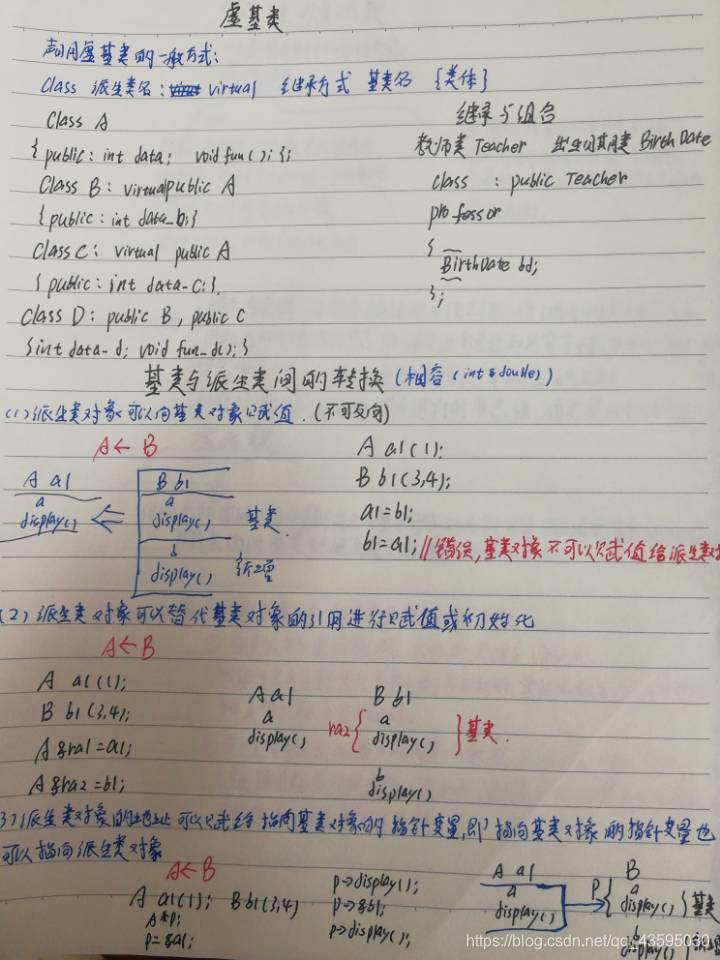 虚基类
声明虚基类的一般方式:
Class 派生类名: virtual 继承方式 基类名 {类体}
Class A
{ public: int data; void fun(); };
Class B: virtual public A
{ public: int data_b; }
Class C: virtual public A
{ public: int data-C; }
Class D: public B, public C
{ int data-d; void fun_d(); }
继承与组合
教师类 Teacher 出生日期类 BirthDate
class : public Teacher
professor
{
BirthDate bd;
};
基类与派生类间的转换 (相容 (int double))
(1) 派生类对象可以向基类对象赋值. (不可反向)
A ← B
A a1
a
display()
B b1
a
display() 基类
b
display()
A a1(1);
B b1(3,4);
a1=b1;
b1=a1; //错误,基类对象不可以赋值给派生类对
(2) 派生类对象可以替代基类对象的引用进行赋值或初始化
A ← B
A a1(1);
B b1(3,4);
A &ra1=a1;
A &ra2=b1;
A a1
a
display()
B b1
ra2 { a
display() } 基类.
b
display()
3) 派生类对象的地址可以赋给指向基类对象的指针变量,即指向基类对象的指针变量也
可以指向派生类对象
A ← B
A a1(1); B b1(3,4)
A *p;
p=&a1;
p->display();
p->&b1;
p->display();
A a1
a
display()
B
p { a
display() } 基类
b
display()
https://blog.csdn.net/qq_43595030